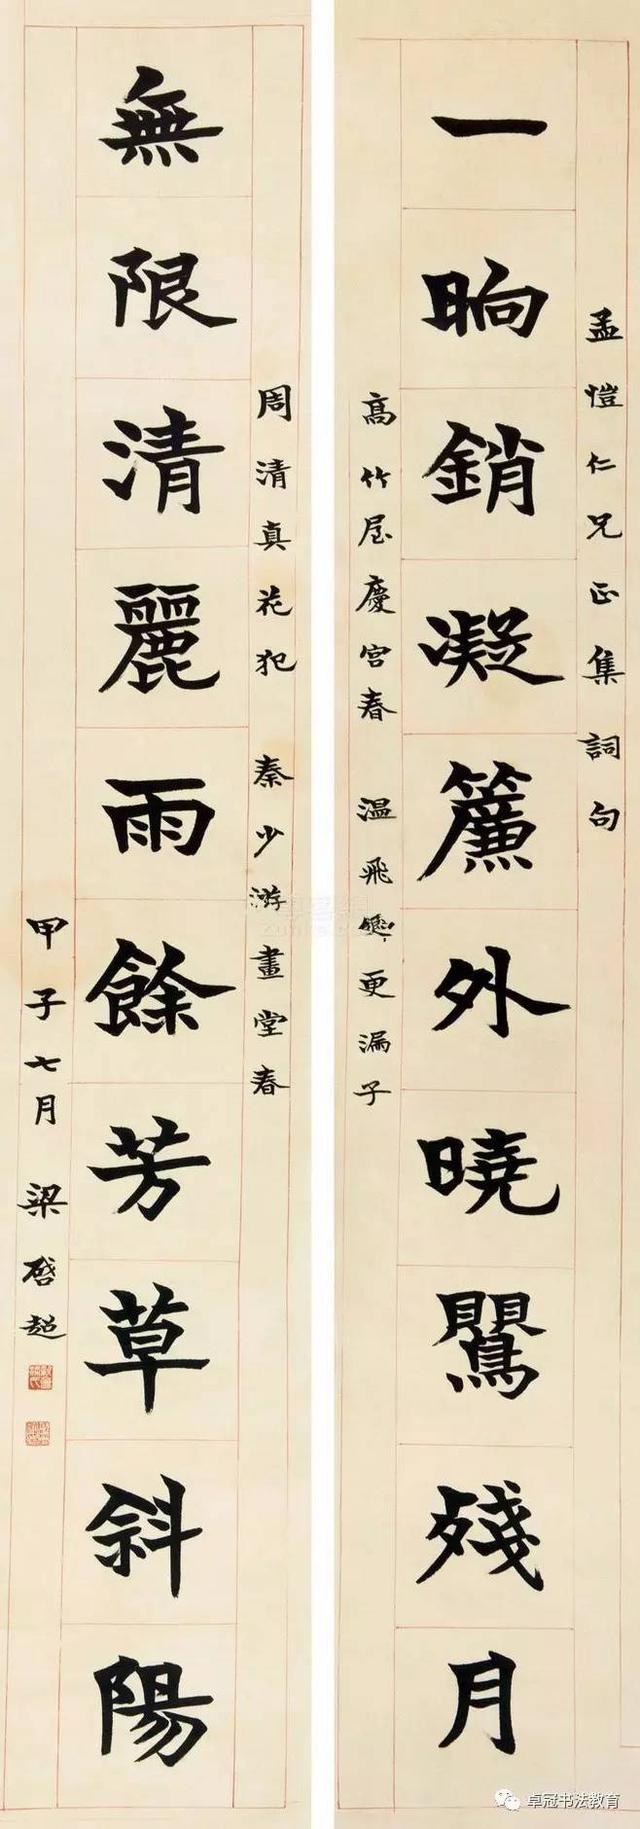 孟愷仁兄正集詞句
一晌銷凝簾外曉鸎殘月
高竹屋慶宮春 溫飛卿更漏子
無限清麗雨餘芳草斜陽
周清真花犯 秦少游畫堂春
甲子七月 梁啓超
卓冠书法教育